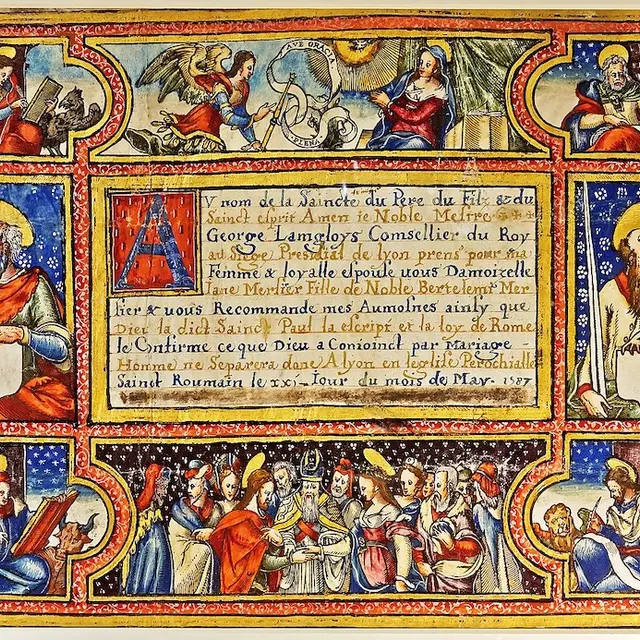 AVE GRACIA
PLENA
AV nom de la Saincte du Pere du Filz & du
Sainct esprit Amen ie Noble Mesire
George Langloys Comsellier du Roy
au Siege Presidial de lyon prens pour ma
Femme & loyalle espouse uous Damoizelle
Iane Merlier Fille de Noble Bertelemi Mer
lier & uous Recommande mes Aumosnes ainsy que
Dieu la dict Sainct Paul la escript et la loy de Rome
le Confirme ce que Dieu a Conioinct par Mariage -
Homme ne Separera donc A lyon en leglise Perochialle
Sainct Roumain le xxi. Iour du mois de May. 1587